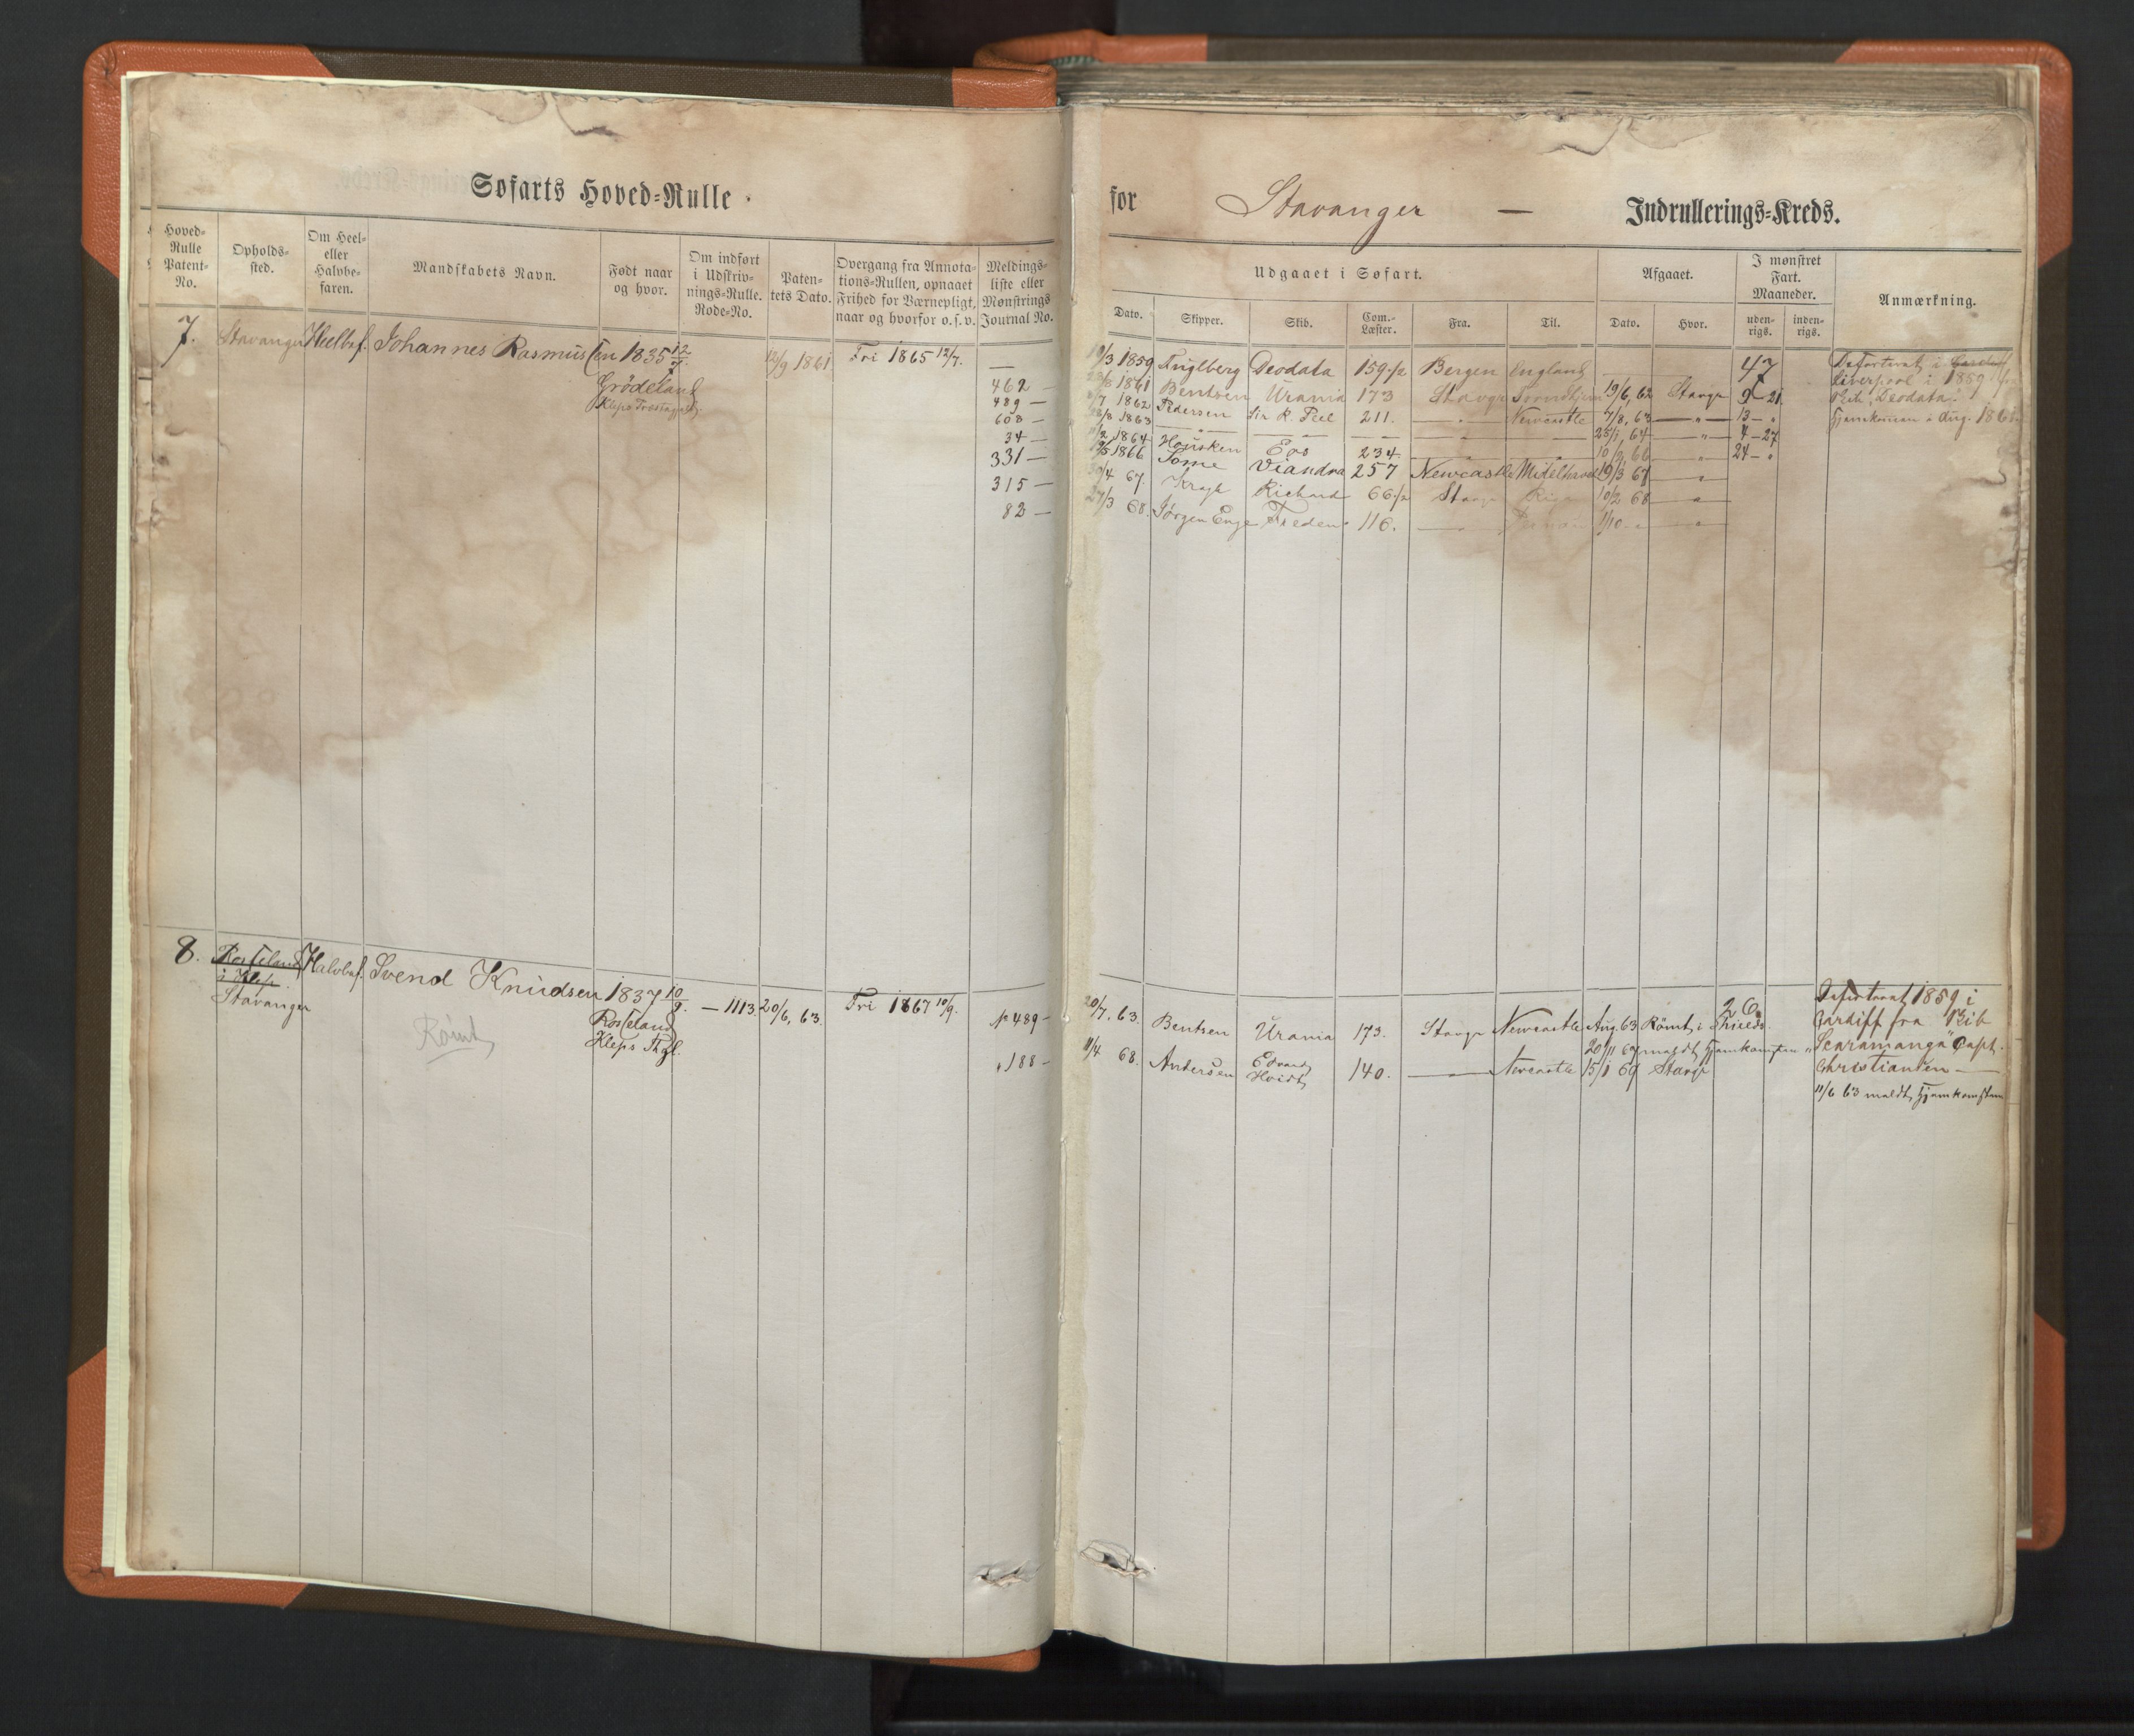 Søfarts Hoved-Rulle
for Stavanger — Indrullerings-Kreds.
Hoved-Rulle Patent-No.
Opholds-sted.
Om Heel- eller Halvbe-faren.
Mandskabets Navn.
Født naar og hvor.
Om indført i Udskriv-nings-Rulle. Rode-No.
Paten-tets Dato.
Overgang fra Annota-tions-Rullen, opnaaet Frihed for Værnepligt, naar og hvorfor o.s.v.
Meldings-liste eller Mønstrings Journal No.
Udgaaet i Søfart.
Afgaaet.
I mønstret Fart. Maaneder.
Anmærkning.
Dato. Skipper. Skib. Com.-Læster. Fra. Til. Dato. Hvor. uden-rigs. inden-rigs.
7. Stavanger Heelbef. Johannes Rasmussen 1835 12/7. 12/9 1861 Fri 1865 12/7. —
Grödeland
Klep
462 —
489 —
608 —
34 —
331 —
315 —
82 —
10/3 1859 Fuglberg Deodata 159 1/2 Bergen England — 47
1861 Bentsen Urania 173 Stavgr 19/6, 62 Stavgr 9 – 21
1862 Pedersen Sir R. Peel 211. — " — Newcastle 7/8, 63 — " — 13 – "
1863 — " — — — — — — " — 28/1, 64 — " — 4 – 27
1864 Housken Eos 234 — " — 10/3, 66 — " — 24 – "
1866 Tome Viandra 257 Newcastle 19/3 67 — " —
30/4 67. Krogh Richard 66 1/2 Stavgr Riga 10/2 68 — " —
27/3 68. Jørgen Enge Freden 116. — " — 1/10 — " —
Desertert i
Liverpool i 1859 fra
Skib Deodata.
Hjemkommen i Aug. 1861
8. Rosseland Halvbef. Svend Knudsen 1837 10/9. — 1113. 20/6, 63. Fri 1867 10/9. № 489 —
i Klep
Stavanger
Rosseland
Kleps Thgl.
Römt
" 188 —
20/7, 63. Bentsen Urania 173. Stavgr Newcastle Aug. 63 Römt i Shields 26.
20/11 67 meldt Hjemkomsten
11/4 68. Andersen Edvard Hvidt 140. — " — Newcastle 15/1 69 Stavgr
Desertert 1859 i
Cardiff fra Skib
"Scaramanga" Capt.
Christiansen —
11/6 63 meldt Hjemkomsten